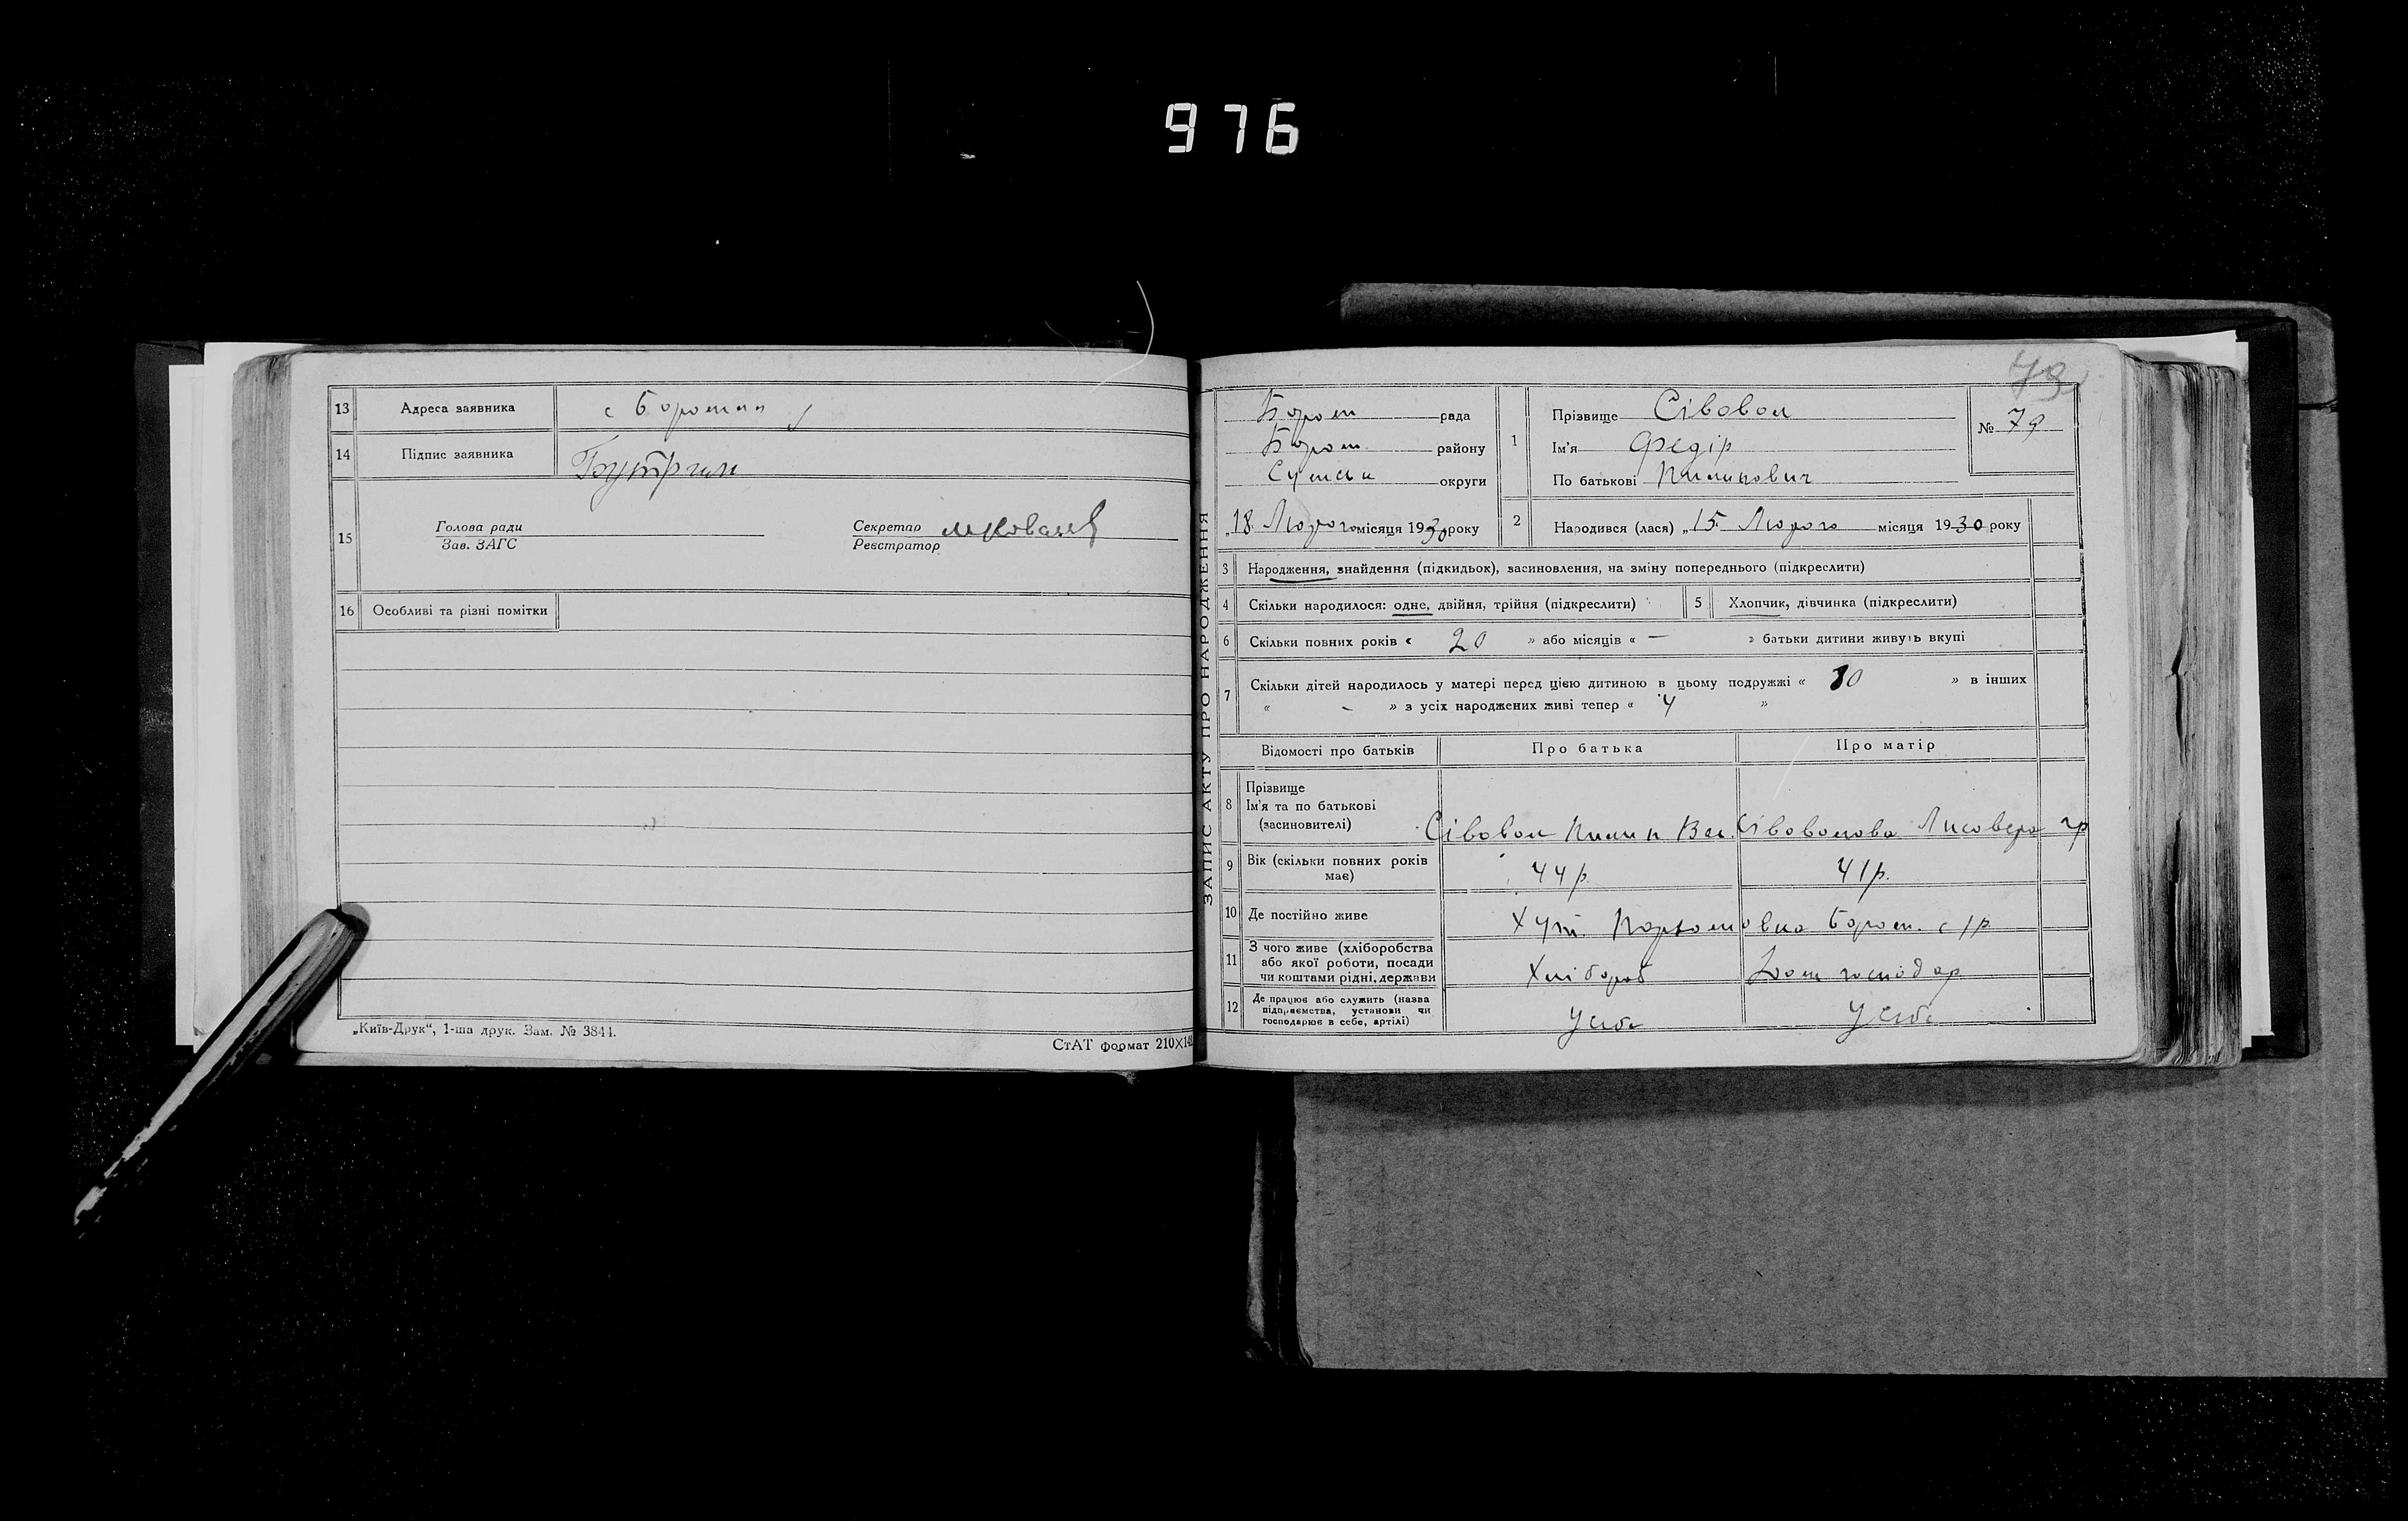 976
13 Адреса заявника с Боромля
14 Підпис заявника
15 Голова ради
Зав. ЗАГС
Секретар
Реєстратор
16 Особливі та різні помітки
„Київ-Друк“, 1-ша друк. Зам. № 3844.
СтАТ формат 210×14
79
ЗАПИС АКТУ ПРО НАРОДЖЕННЯ
Бором рада
Бором района
Сумськ округи
„18 Лютого місяця 1930 року
1 Прізвище Сівовол
Ім'я Федір
По батькові Пилипович
№ 79
2 Народився (лася) „15 Лютого місяця 1930 року
3 Народження, знайдення (підкидьок), засиновлення, на зміну попереднього (підкреслити)
4 Скільки народилося: одне, двійня, трійня (підкреслити)
5 Хлопчик, дівчинка (підкреслити)
6 Скільки повних років « 20 » або місяців « — » батьки дитини живуть вкупі
7 Скільки дітей народилось у матері перед цією дитиною в цьому подружжі « 10 » в інших
« - » з усіх народжених живі тепер « 4 »
Відомості про батьків Про батька Про матір
8 Прізвище
Ім'я та по батькові
(засиновителі)
Сівовол Пилип Вас. Сівоволова Лисавера гр
9 Вік (скільки повних років
має)
44 р. 41 р.
10 Де постійно живе Хут. Пархомовка Бором. с/р.
11 З чого живе (хліборобства
або якої роботи, посади
чи коштами рідні, держави
Хлібороб Дом господар
12 Де працює або служить (назва
підприємства, установи чи
господарює в себе, артілі)
У себе У себе